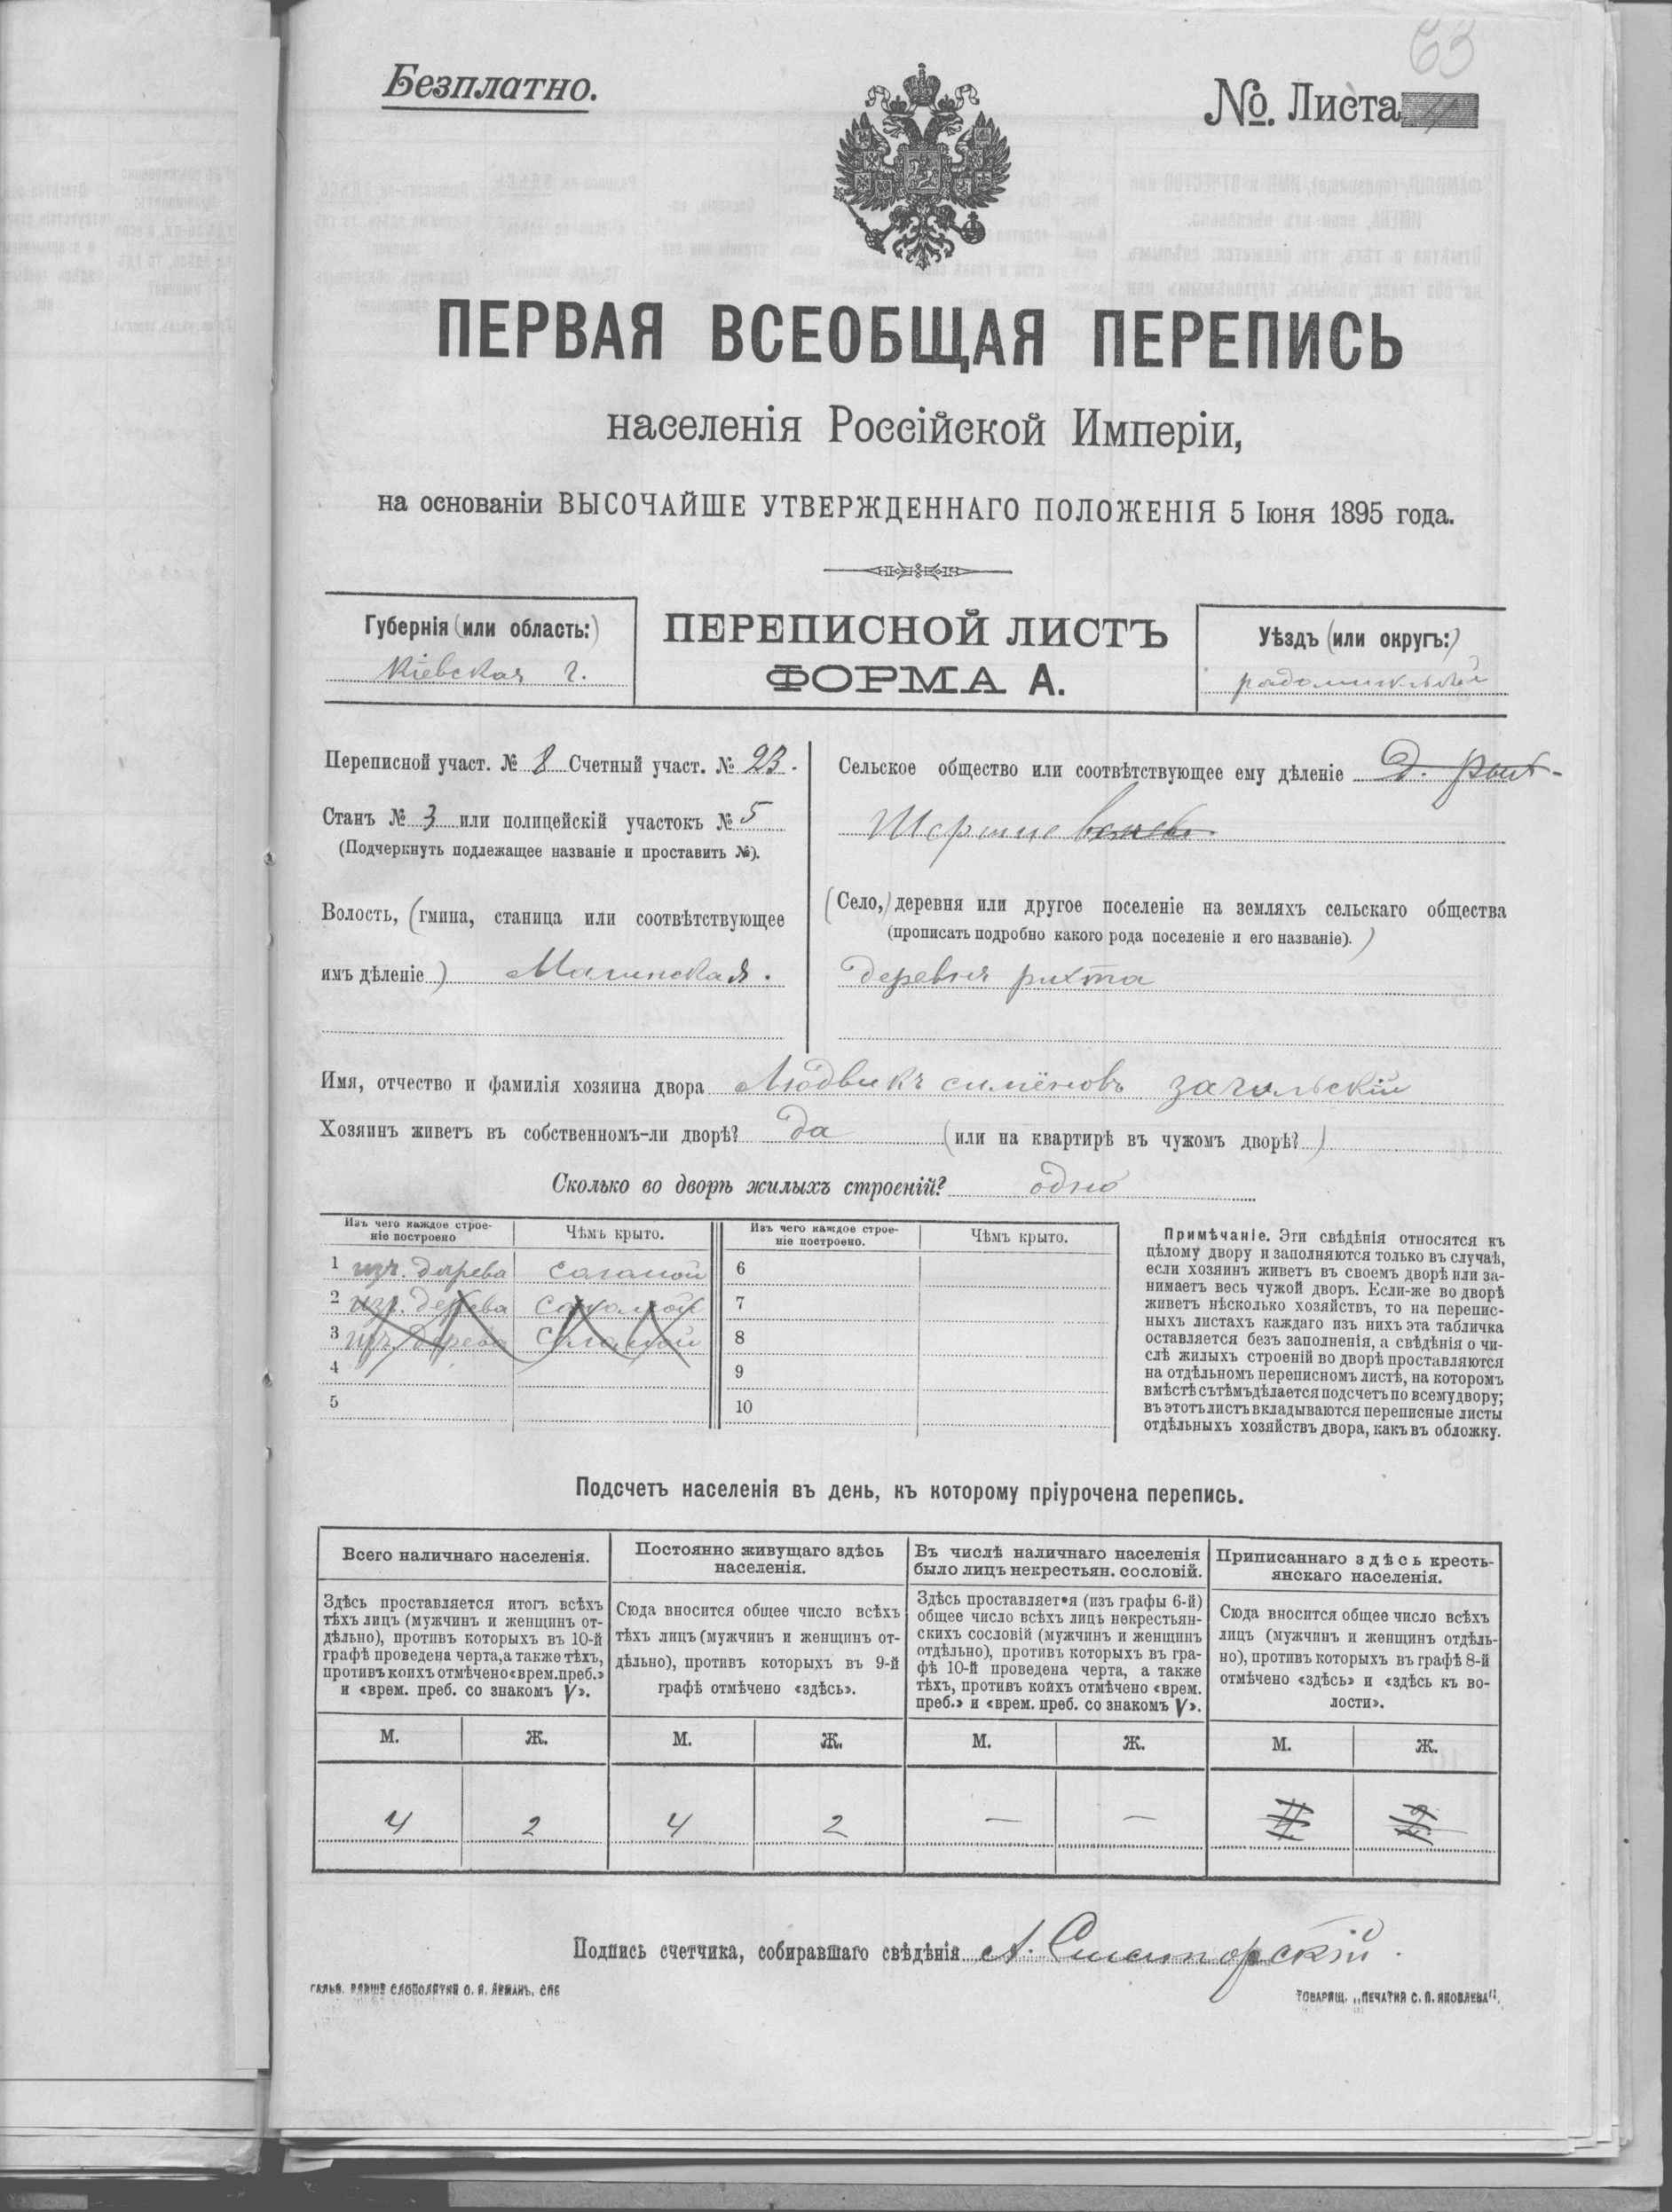 63
Безплатно.
№. Листа
ПЕРВАЯ ВСЕОБЩАЯ ПЕРЕПИСЬ
населенія Россійской Имперіи,
на основаніи ВЫСОЧАЙШЕ УТВЕРЖДЕННАГО ПОЛОЖЕНІЯ 5 Іюня 1895 года.
Губернія (или область:)
Кіевская г.
ПЕРЕПИСНОЙ ЛИСТЪ
ФОРМА А.
Уѣздъ (или округъ:)
Переписной участ. № 8 Счетный участ. № 23.
Станъ № 3 или полицейскій участокъ № 5
(Подчеркнуть подлежащее названіе и проставить №).
Волость, (гмина, станица или соотвѣтствующее
имъ дѣленіе) Малинская.
Сельское общество или соотвѣтствующее ему дѣленіе Д.
(Село,) деревня или другое поселеніе на земляхъ сельскаго общества
(прописать подробно какого рода поселеніе и его названіе).)
деревня рихта
Имя, отчество и фамилія хозяина двора Людвикъ симёновъ
Хозяинъ живетъ въ собственномъ-ли дворѣ? да (или на квартирѣ въ чужомъ дворѣ?)
Сколько во дворѣ жилыхъ строеній? одно
Изъ чего каждое строе-
ніе построено
Чѣмъ крыто.
Изъ чего каждое строе-
ніе построено.
Чѣмъ крыто.
1 изъ. дерева саламой
2 изъ. дерева саломой
3 изъ дерева саламой
4
5
6
7
8
9
10
Примѣчаніе. Эти свѣдѣнія относятся къ
цѣлому двору и заполняются только въ случаѣ,
если хозяинъ живетъ въ своемъ дворѣ или за-
нимаетъ весь чужой дворъ. Если-же во дворѣ
живетъ нѣсколько хозяйствъ, то на перепис-
ныхъ листахъ каждаго изъ нихъ эта табличка
оставляется безъ заполненія, а свѣдѣнія о чи-
слѣ жилыхъ строеній во дворѣ проставляются
на отдѣльномъ переписномъ листѣ, на которомъ
вмѣстѣ съ тѣмъ дѣлается подсчетъ по всему двору;
въ этотъ листъ вкладываются переписные листы
отдѣльныхъ хозяйствъ двора, какъ въ обложку.
Подсчетъ населенія въ день, къ которому пріурочена перепись.
Всего наличнаго населенія.
Здѣсь проставляется итогъ всѣхъ
тѣхъ лицъ (мужчинъ и женщинъ от-
дѣльно), противъ которыхъ въ 10-й
графѣ проведена черта, а также тѣхъ,
противъ коихъ отмѣчено «врем. преб.»
и «врем. преб. со знакомъ V».
Постоянно живущаго здѣсь
населенія.
Сюда вносится общее число всѣхъ
тѣхъ лицъ (мужчинъ и женщинъ от-
дѣльно), противъ которыхъ въ 9-й
графѣ отмѣчено «здѣсь».
Въ числѣ наличнаго населенія
было лицъ некрестьян. сословій.
Здѣсь проставляется (изъ графы 6-й)
общее число всѣхъ лицъ некрестьян-
скихъ сословій (мужчинъ и женщинъ
отдѣльно), противъ которыхъ въ гра-
фѣ 10-й проведена черта, а также
тѣхъ, противъ коихъ отмѣчено «врем.
преб.» и «врем. преб. со знакомъ V».
Приписаннаго здѣсь кресть-
янскаго населенія.
Сюда вносится общее число всѣхъ
лицъ (мужчинъ и женщинъ отдѣль-
но), противъ которыхъ въ графѣ 8-й
отмѣчено «здѣсь» и «здѣсь къ во-
лости».
М. Ж. М. Ж. М. Ж. М. Ж.
4 2 4 2 — — 4 2
Подпись счетчика, собиравшаго свѣдѣнія А.
ТОВАРИЩ. „ПЕЧАТНЯ С. П. ЯКОВЛЕВА".